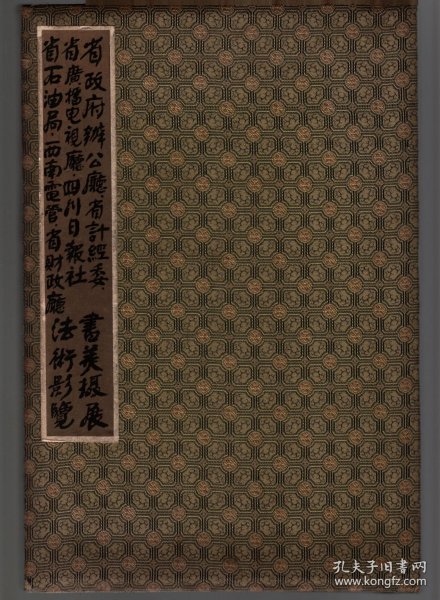 省政府辦公廳省計經委
省廣播电視廳四川日報社
省石油局·西南電管省財政廳
書美摄展
法術影覽
孔夫子旧书网
www.kongfz.com